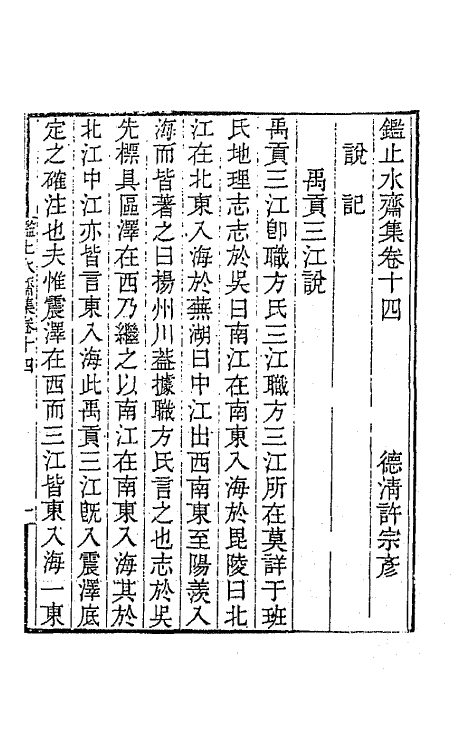 鑑止水齋集卷十四
德清許宗彥
說記
禹貢三江說
禹貢三江卽職方氏三江職方三江所在莫詳于班
氏地理志志於吳曰南江在南東入海於毘陵曰北
江在北東入海於蕪湖曰中江出西南東至陽羨入
海而皆著之曰揚州川葢據職方氏言之也志於吳
先標具區澤在西乃繼之以南江在南東入海其於
北江中江亦皆言東入海此禹貢三江旣入震澤底
定之確注也夫惟震澤在西而三江皆東入海一東
鑑止水齋集卷十四
一